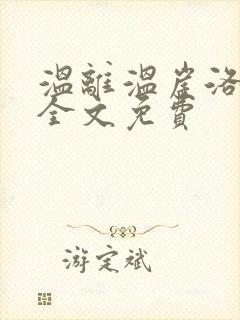 温離温崖洛
全文免費
游定斌